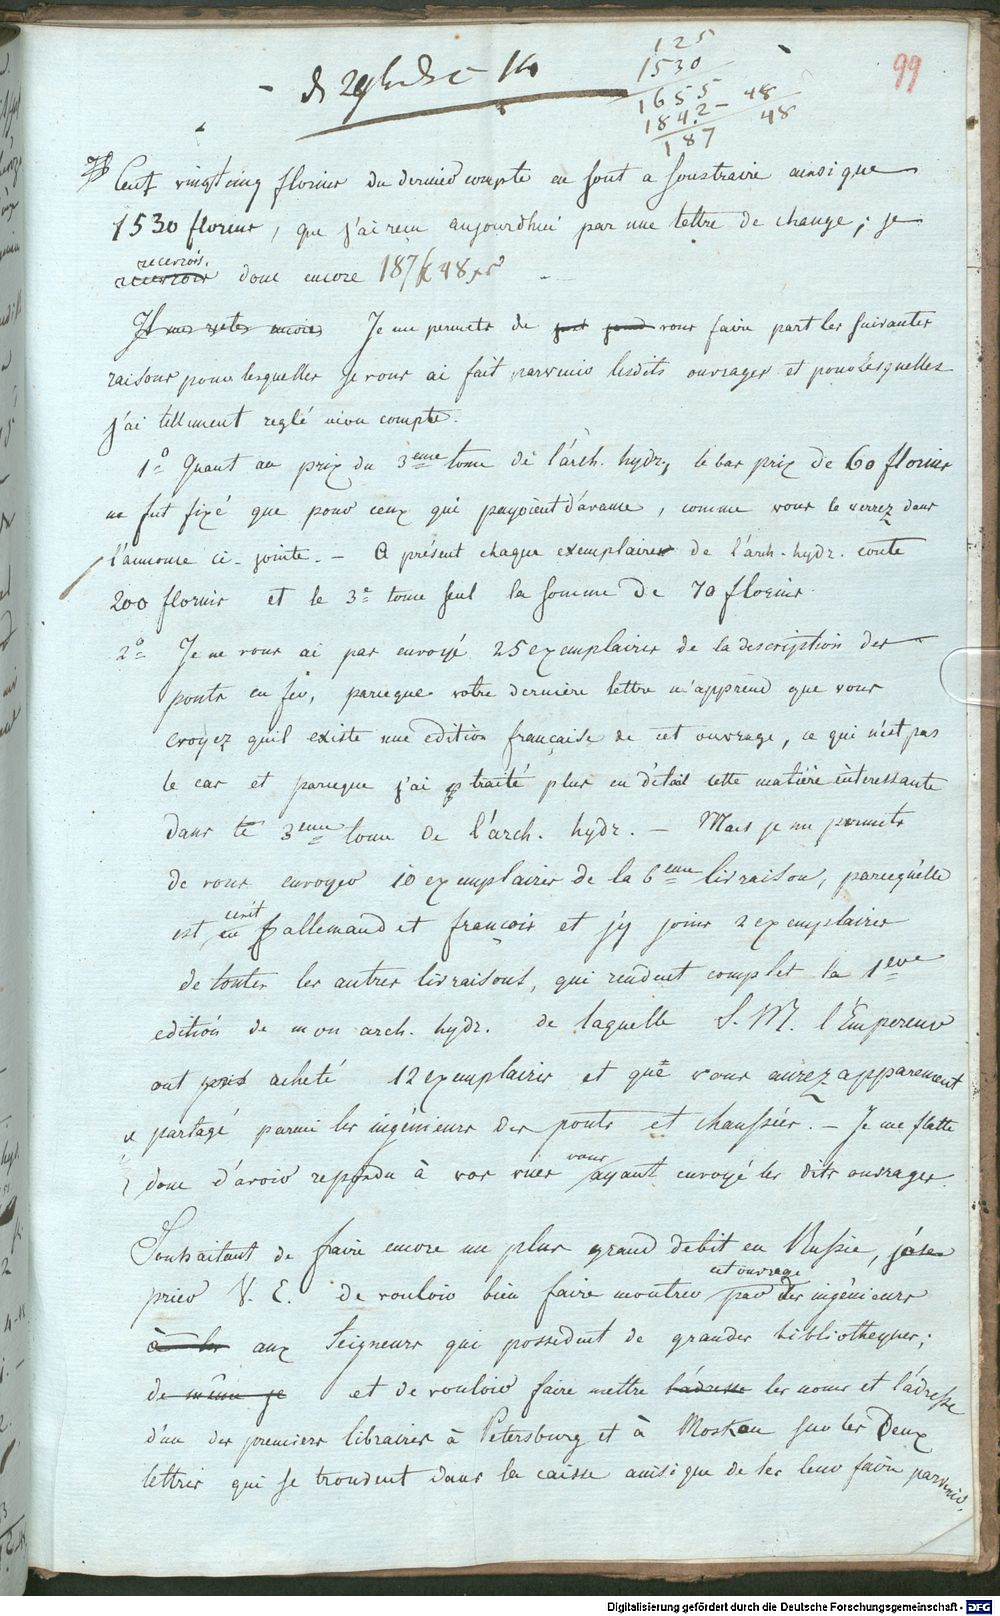 125
1530
1655
1842 - 48
187 48
99
Cent vingtcinq florins du dernier compte en sont a soustraire ainsi que
1530 florins, que j'ai reçu aujourdhui par une lettre de change; je
recevrois
recevrois donc encore 187 f 48 xr
Il me reste encore Je me permets de vous faire part les suivantes
raisons pour lesquelles je vous ai fait parvenir lesdits ouvrages et pour lesquelles
j'ai tellement reglé mon compte.
1º Quant au prix du 3eme tome de l'arch. hydr, le bas prix de 60 florins
ne fut fixé que pour ceux qui payoient d'avance, comme vous le verrez dans
l'annonce ci-jointe. - A présent chaque exemplaires de l'arch-hydr. coute
200 florins et le 3e tome seul la somme de 70 florins.
2º Je ne vous ai pas envoyé 25 exemplaires de la description des
ponts en fer, parceque votre dernière lettre m'apprend que vous
croyez qu'il existe une edition française de cet ouvrage, ce qui n'est pas
le cas et parceque j'ai traité plus en détail cette matière interessante
dans le 3eme tome de l'arch. hydr. - Mais je me permets
de vous envoyer 10 exemplaires de la 6eme livraison, parcequ'elle
ecrit
est en allemand et françois et j'y joins 2 exemplaires
de toutes les autres livraisons, qui rendent complet la 1ere
edition de mon arch. hydr. de laquelle S. M. l'Empereur
ont pris acheté 12 exemplaires et que vous aurez apparement
partagé parmi les ingénieurs des ponts et chaussées. - Je me flatte
vous
donc d'avoir repondu à vos vues ayant envoyé les dits ouvrages.
Souhaitant de faire encore un plus grand debit en Russie, j'ose
cet ouvrage
prier V. E. de vouloir bien faire montrer par des ingénieurs
à les aux Seigneurs qui possedent de grandes bibliotheques;
de même je et de vouloir faire mettre l'adresse les noms et l'adresse
d'un des premiers libraires à Petersburg et à Moskau sur les Deux
lettres qui se trouvent dans la caisse ainsi que de les leur faire parvenir.
Digitalisierung gefördert durch die Deutsche Forschungsgemeinschaft - DFG